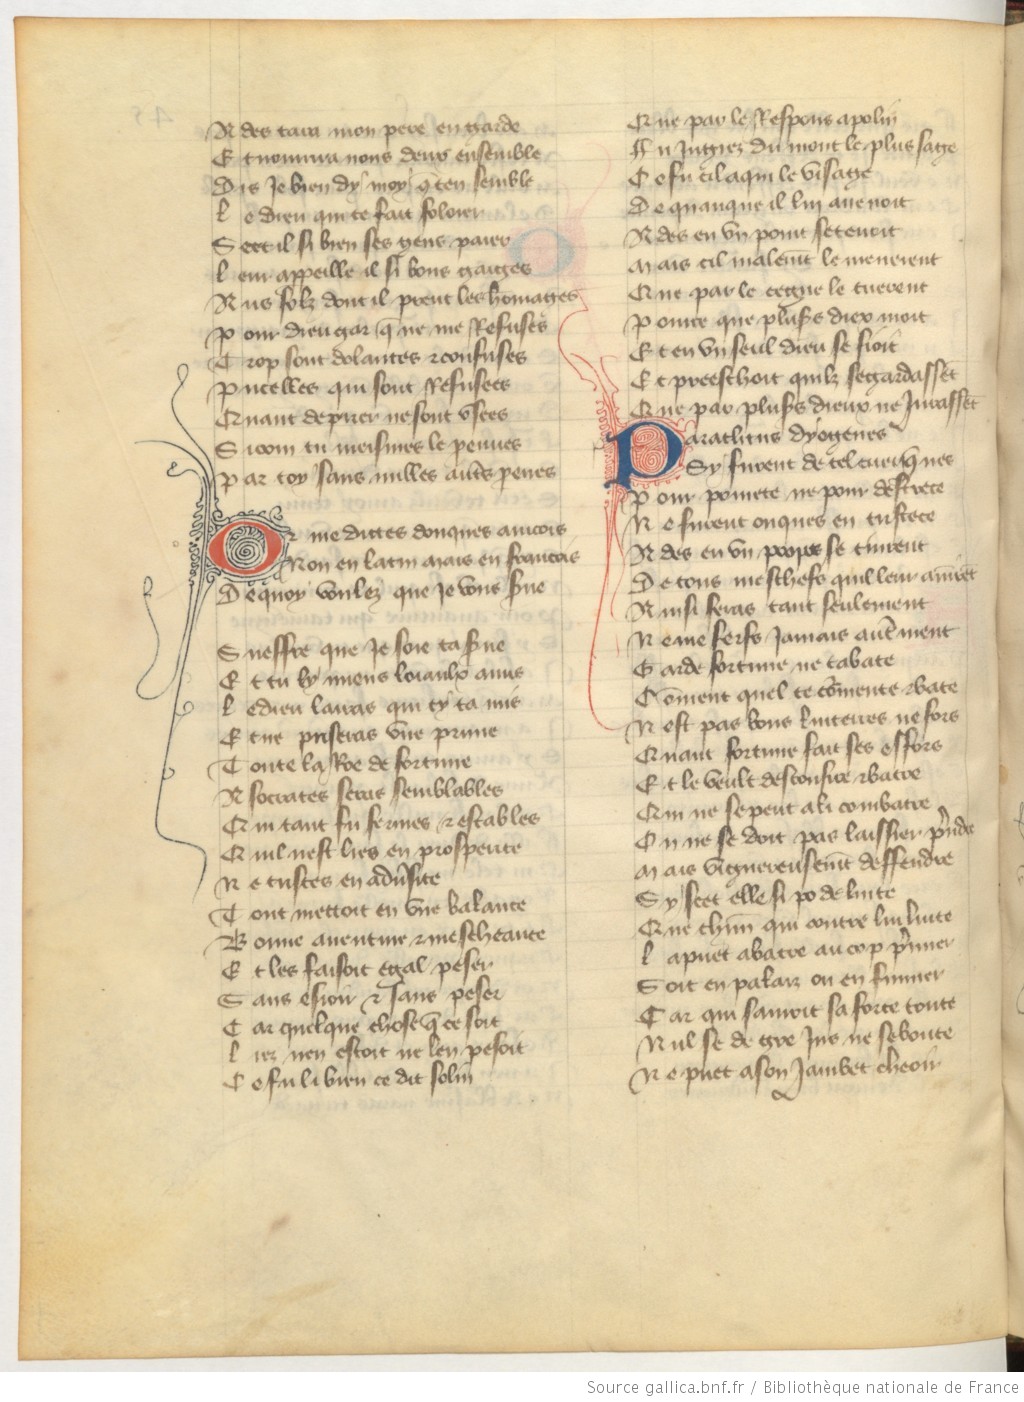 A des tara mon pere en garde
E t nourrira nous deux ensemble
D is Je bien dy moy q̄ ten semble
L e dieu qui te fait foloier
S cet il si bien ses gens paier
L eur appeille il si bons gaiges
A us folz dont il prent les homages
P our dieu gar q̄ ne me Refuses
T rop sont dolantes et confuses
P ucelles qui sont Refusees
Q uant de prier ne sont usees
S i com tu meismes le peuues
P ar toy sans nulles autres preues
O r me dictes donques ancois
N on en latin mais en francois
D e quoy voulez que Je vous sue
S ueffre que Je soie ta sue
E t tu ly miens loiaulx amis
L e dieu lairas qui cy ta mis
E t ne priseras vne prune
T oute la Roe de fortune
A socrates seras semblables
Q ui tant fu fermes et estables
Q uil nest lies en prosperite
N e tristes en adu̾site
T out mettoit en vne balance
B onne auenture et mescheance
E t les faisoit egal peser
S ans esioir et sans peser
C ar quelque chose q̄ ce soit
L iez nen estoit ne len pesoit
C e fu li bien ce dit solin
Q ue par le Respons apolin
F u Jugiez du mont le plus sage
C e fu cil a qui le visage
D e quanque il lui auenoit
A des en vn point se tenoit
M ais cil malemt̄ le menerent
Q ue par le cegue le tuerent
P ource que plus̾s diex moit
E t en vn seul dieu se fioit
E t preeschoit quilz se gardassēt
Q ue par plus̾s dieux ne Jurassēt
P araclitus dyogenes
S y furent de tel cuer q̄ nes
P our pourete ne pour destrece
N e furent onques en tristece
A des en vn propos se tindrent
D e tous meschefs qui leur auindrēt
A insi feras tant seulement
N e me serfs Jamais aut̾ment
G arde fortune ne tabate
C ōment quel te tormente et bate
N est pas bons luiterres ne fors
Q uant fortune fait ses effors
E t le veult desconfire et batre
Q ui ne se peut a li combatre
O n ne se doit pas laissier p̄ndre
M ais viguereusemt̄ deffendre
S y scet elle si po de luite
Q ue chūn qui contre lui luite
L a puet abatre au cop p̄mier
S oit en palaiz ou en fumier
C ar qui sauroit sa force toute
N ul se de gre Jus ne se boute
N e puet a son Jambet cheoir
Source gallica.bnf.fr / Bibliothèque nationale de France